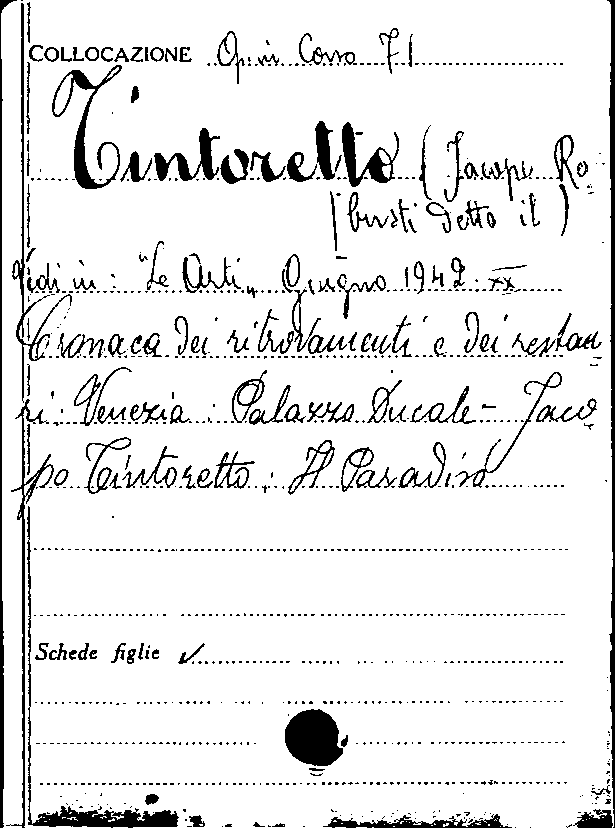 COLLOCAZIONE Op. in Corso 71
Tintoretto (Jacopo Ro=
busti detto il)
Vedi in: "Le Arti" Giugno 1942.XX
Cronaca dei ritrovamenti e dei restau=
ri: Venezia: Palazzo Ducale - Jaco=
po Tintoretto: Il Paradiso
Schede figlie ✓